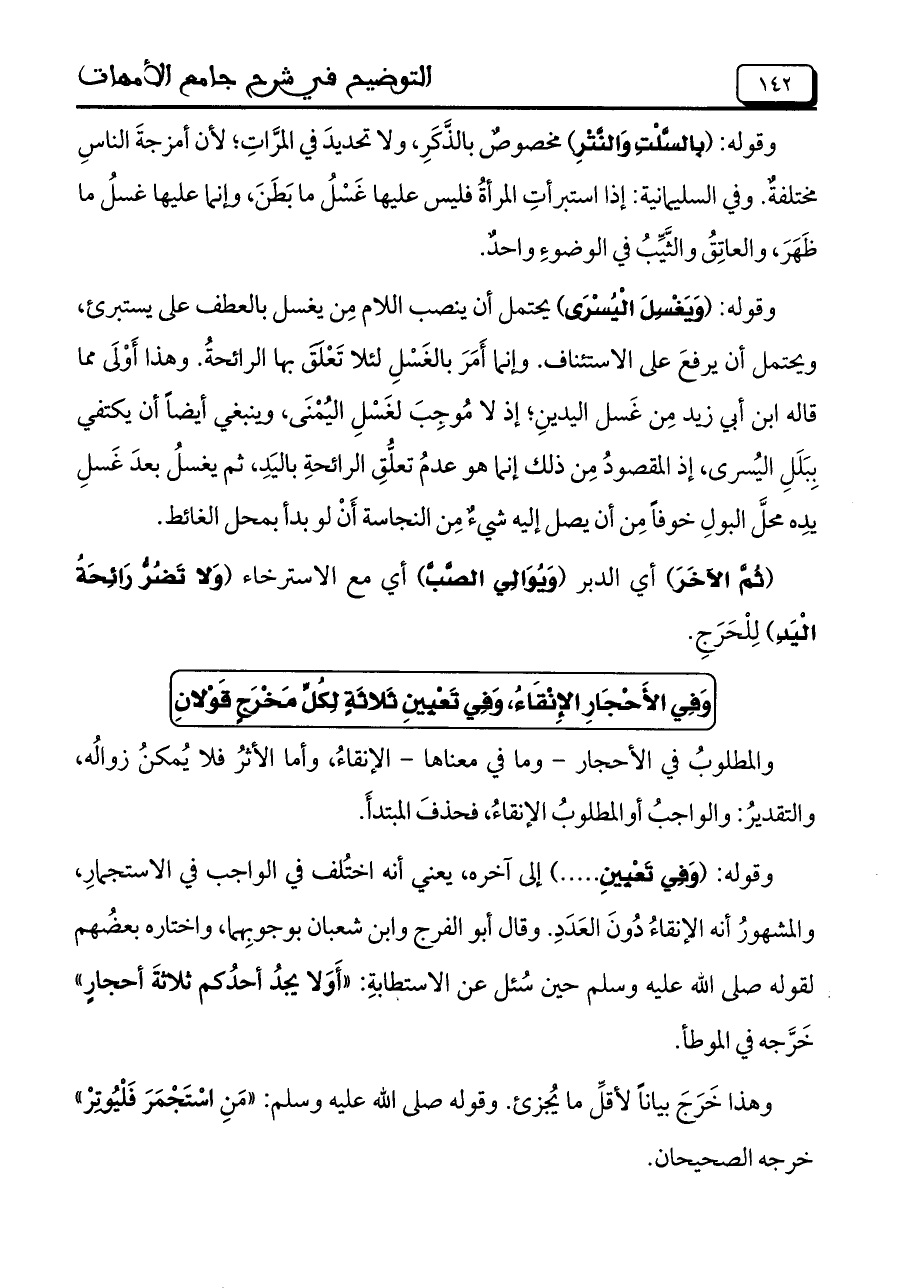 ١٤٢
التوضيح في شرح جامع الأمهات
وقوله: (بِالسَّلْتِ وَالنَّتْرِ) مخصوصٌ بالذَّكَرِ، ولا تحديدَ في المرَّاتِ؛ لأن أمزجةَ الناسِ
مختلفةٌ. وفي السليمانية: إذا استبرأتِ المرأةُ فليس عليها غَسْلُ ما بَطَنَ، وإنما عليها غسلُ ما
ظَهَرَ، والعاتِقُ والثَّيِّبُ في الوضوءِ واحدٌ.
وقوله: (وَيَغْسِلَ الْيُسْرَى) يحتمل أن ينصب اللام مِن يغسل بالعطف على يستبرئ،
ويحتمل أن يرفعَ على الاستئناف. وإنما أَمَرَ بالغَسْلِ لئلا تَعْلَقَ بها الرائحةُ. وهذا أَوْلَى مما
قاله ابن أبي زيد مِن غَسل اليدينِ؛ إذ لا مُوجِبَ لغَسْلِ اليُمْنَى، وينبغي أيضاً أن يكتفي
بِبَلَلِ اليُسرى، إذ المقصودُ مِن ذلك إنما هو عدمُ تعلُّقِ الرائحةِ باليَدِ، ثم يغسلُ بعدَ غَسلِ
يدِه محلَّ البولِ خوفاً مِن أن يصل إليه شيءٌ مِن النجاسة أَنْ لو بدأ بمحل الغائط.
(ثُمَّ الآخَرَ) أي الدبر (وَيُوَالِي الصَّبَّ) أي مع الاسترخاء (وَلا تَضُرُّ رَائِحَةُ
الْيَدِ) لِلْحَرَجِ.
وَفِي الأَحْجَارِ الإِنْقَاءُ، وَفِي تَعْيِينِ ثَلاثَةٍ لِكُلِّ مَخْرَجٍ قَوْلانِ
والمطلوبُ في الأحجار – وما في معناها – الإنقاءُ، وأما الأثرُ فلا يُمكنُ زوالُه،
والتقديرُ: والواجبُ أو المطلوبُ الإنقاءُ، فحذفَ المبتدأَ.
وقوله: (وَفِي تَعْيِينِ.....) إلى آخره، يعني أنه اختُلف في الواجب في الاستجمارِ،
والمشهورُ أنه الإنقاءُ دُونَ العَدَدِ. وقال أبو الفرج وابن شعبان بوجوبِهما، واختاره بعضُهم
لقوله صلى الله عليه وسلم حين سُئل عن الاستطابةِ: «أَوَلا يجدُ أحدُكم ثلاثةَ أحجارٍ»
خَرَّجه في الموطأ.
وهذا خَرَجَ بياناً لأقلِّ ما يُجزئ. وقوله صلى الله عليه وسلم: «مَنِ اسْتَجْمَرَ فَلْيُوتِرْ»
خرجه الصحيحان.